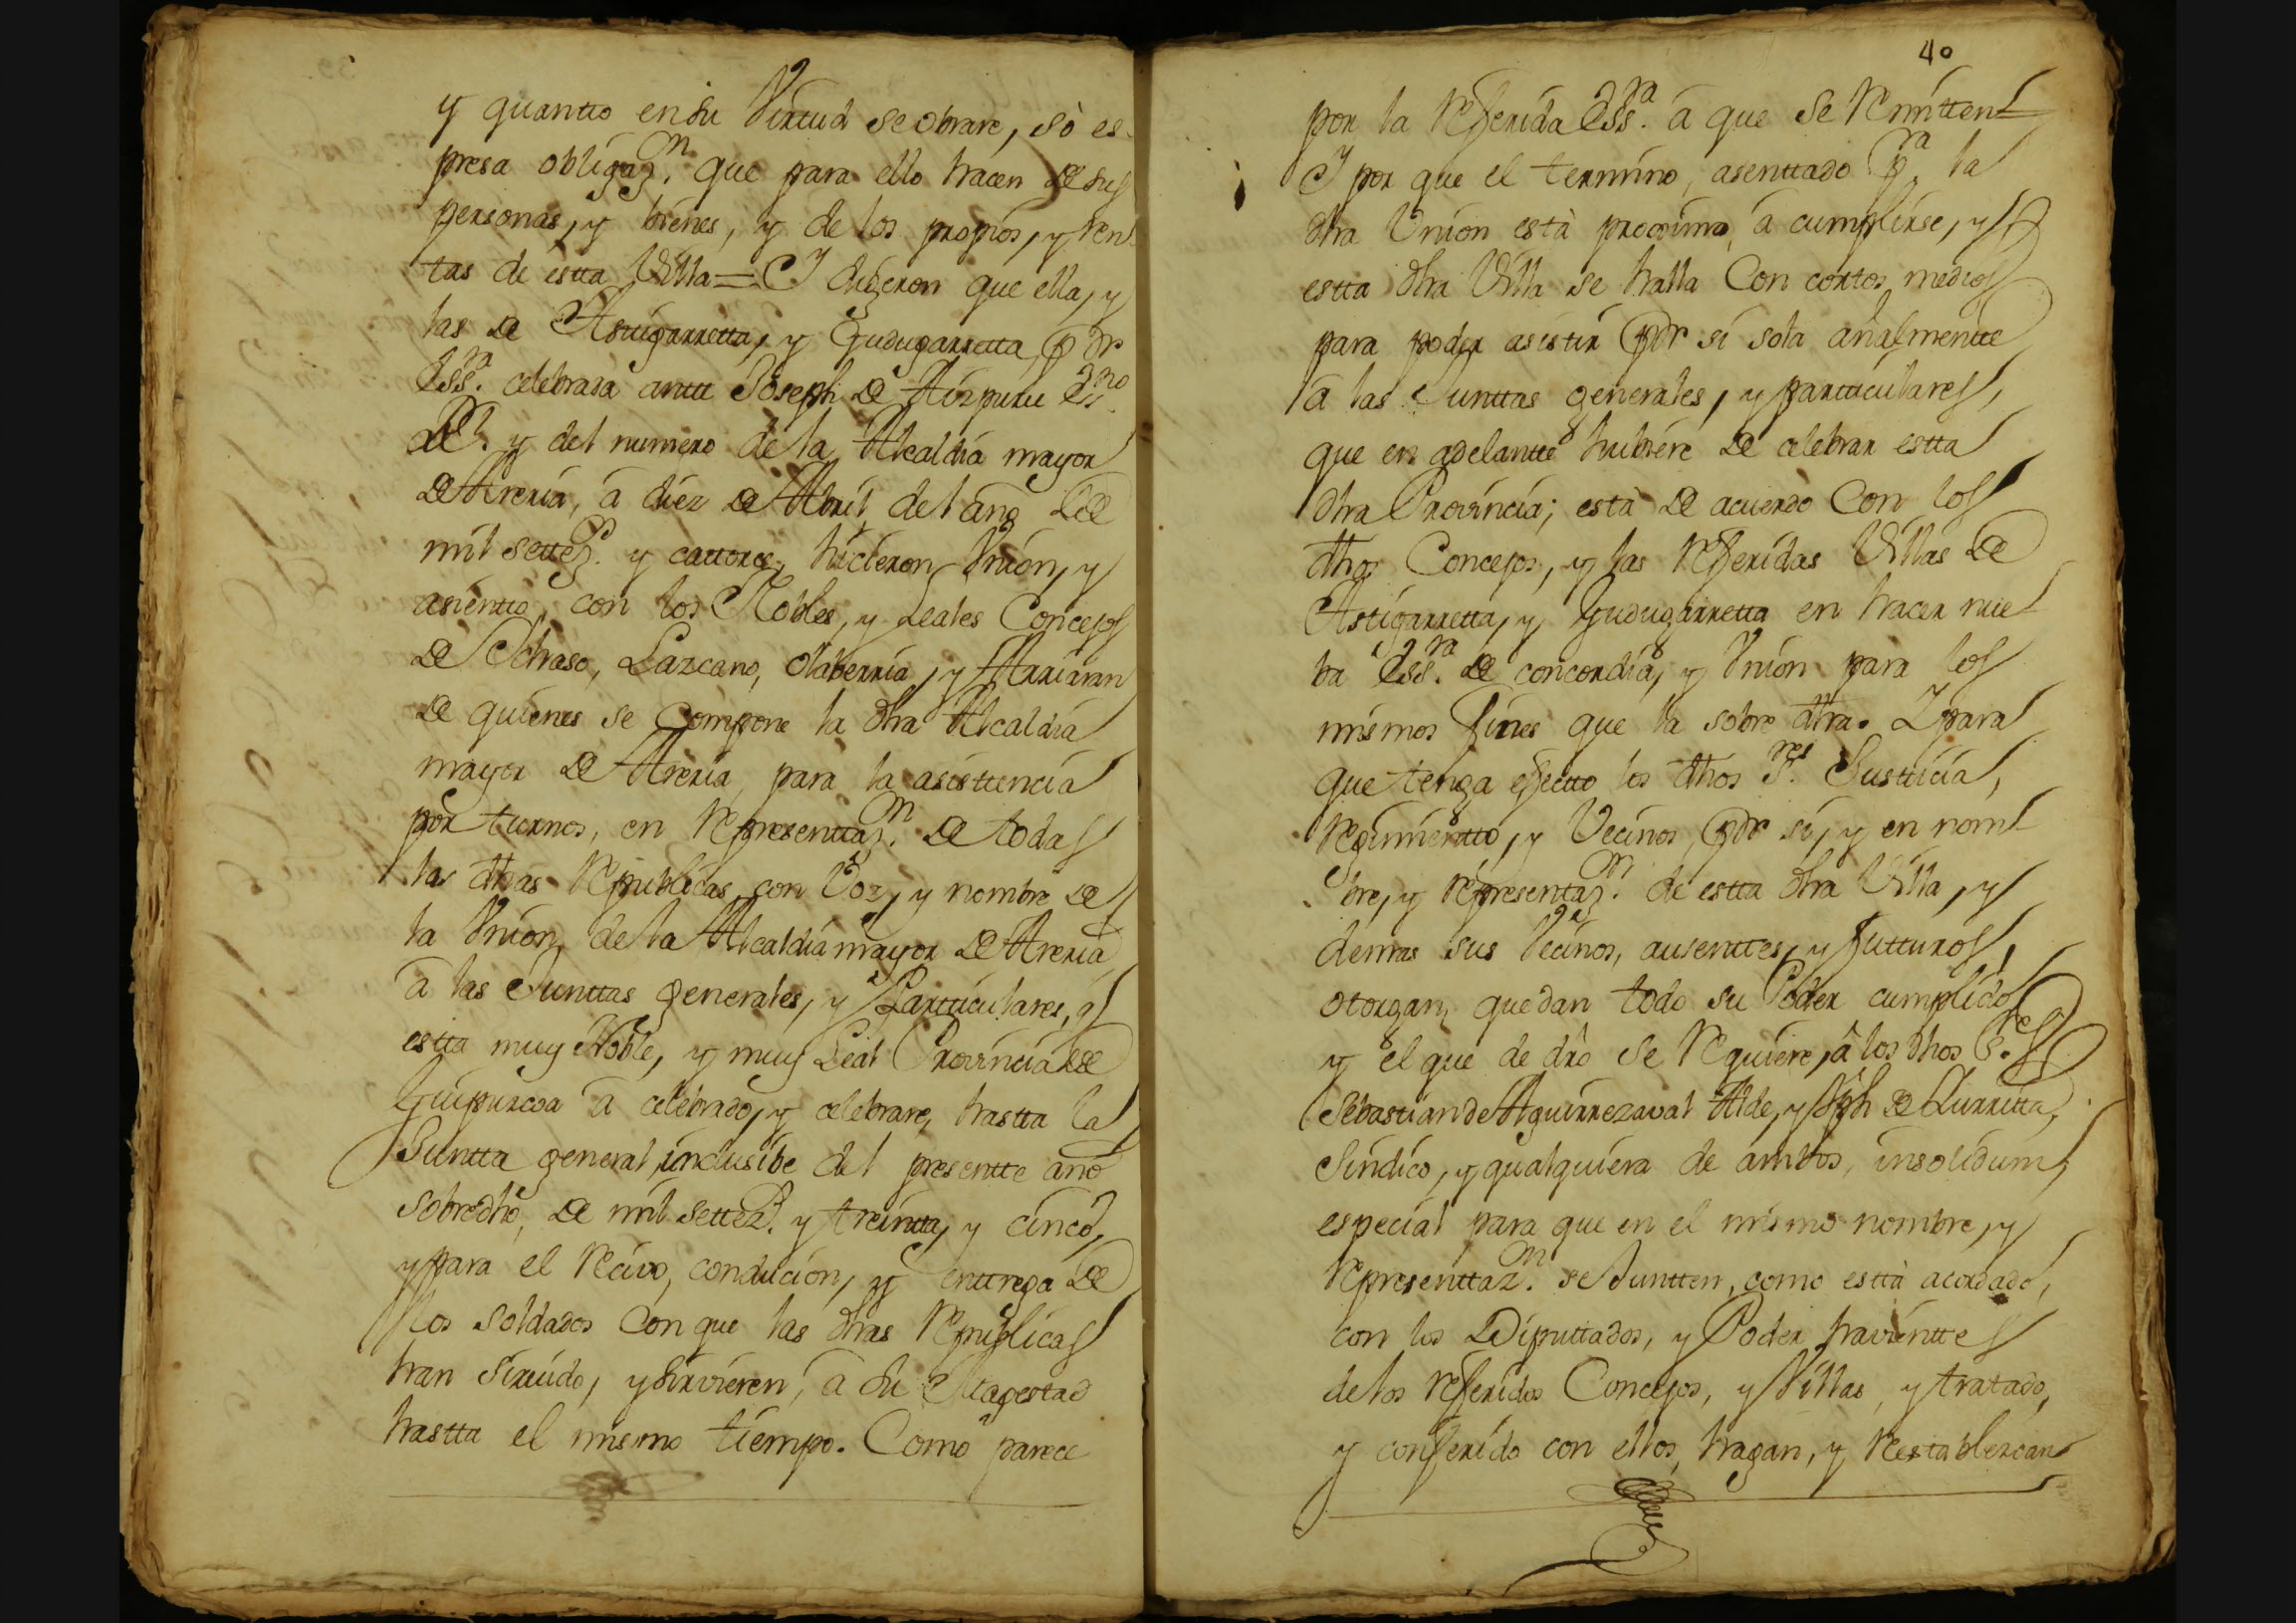 y quantto en su Virtud se obrare, sò es-
presa obligaz.n que para ello hacen de sus
personas, y bienes, y de los propios, y ren-
tas de estta Villa = Y digeron que ella, y
las de Asttigarretta, y Gudugarretta, por
Ess.ra celebrada antte Joseph de Aizpuru Ess.no
Rl. y del numero de la Alcaldia mayor
de Areria, à diez de Abril del año de
mil settez.s y cattorce, hicieron Vnion, y
asientto, con los Nobles, y Leales Concejos
de Ychaso, Lazcano, Olaberria, y Arriaran
de quienes se compone la dha Alcaldia
mayor de Areria, para la asisttencia
por turnos, en representtaz.n de todas
las dhas Republicas, con Voz, y nombre de
la Vnion de la Alcaldia mayor de Areria
à las Junttas generales, y Partticulares, q
estta muy Noble, y muy Leal Provincia de
Guipuzcoa à celebrado, y celebrare, hastta la
Juntta general, inclusibe del presentte año
sobredho, de mil settez.s y treintta, y cinco,
y para el recivo, condución, y enttrega de
los soldados con que las dhas Republicas
han sirvido, y sirvieren, à su Magestad
hastta el mismo tiempo. Como parece
40
por la referida Ess.ra à que se remitten-
Y por que el termino, asenttado p.ra la
dha Vnion està proximo, à cumplirse, y
estta dha Villa se halla con cortos medios
para poder asistir por sì sola añalmentte
à las Junttas generales, y partticulares,
que en adelantte hubiere de celebrar estta
dha Provincia; està de acuerdo con los
dhos Concejos, y las referidas Villas de
Astigarretta, y Gudugarretta en hacer nue-
ba Ess.ra de concordia, y Vnion para los
mismos fines que la sobre dha. Y para
que tenga efectto los dhos S.res Justticia,
regimientto, y Vecinos, por sì, y en nom-
bre, y representaz.n de estta dha Villa, y
demas sus Vecinos, ausenttes, y futturos,
otorgan, que dan todo su Poder cumplido
y el que de drò se requiere, à los dhos S.res
Sebastian de Aguirrezaval Alde, y Jph de Lurritta,
Sindico, y qualquiera de ambos, insolidum,
especial para que en el mismo nombre, y
representtaz.n se Juntten, como esttà acordado,
con los Diputtados, y Poder havientte
de los referidos Concejos, y Villas, y tratado,
y conferido con ellos, hagan, y restablezcan